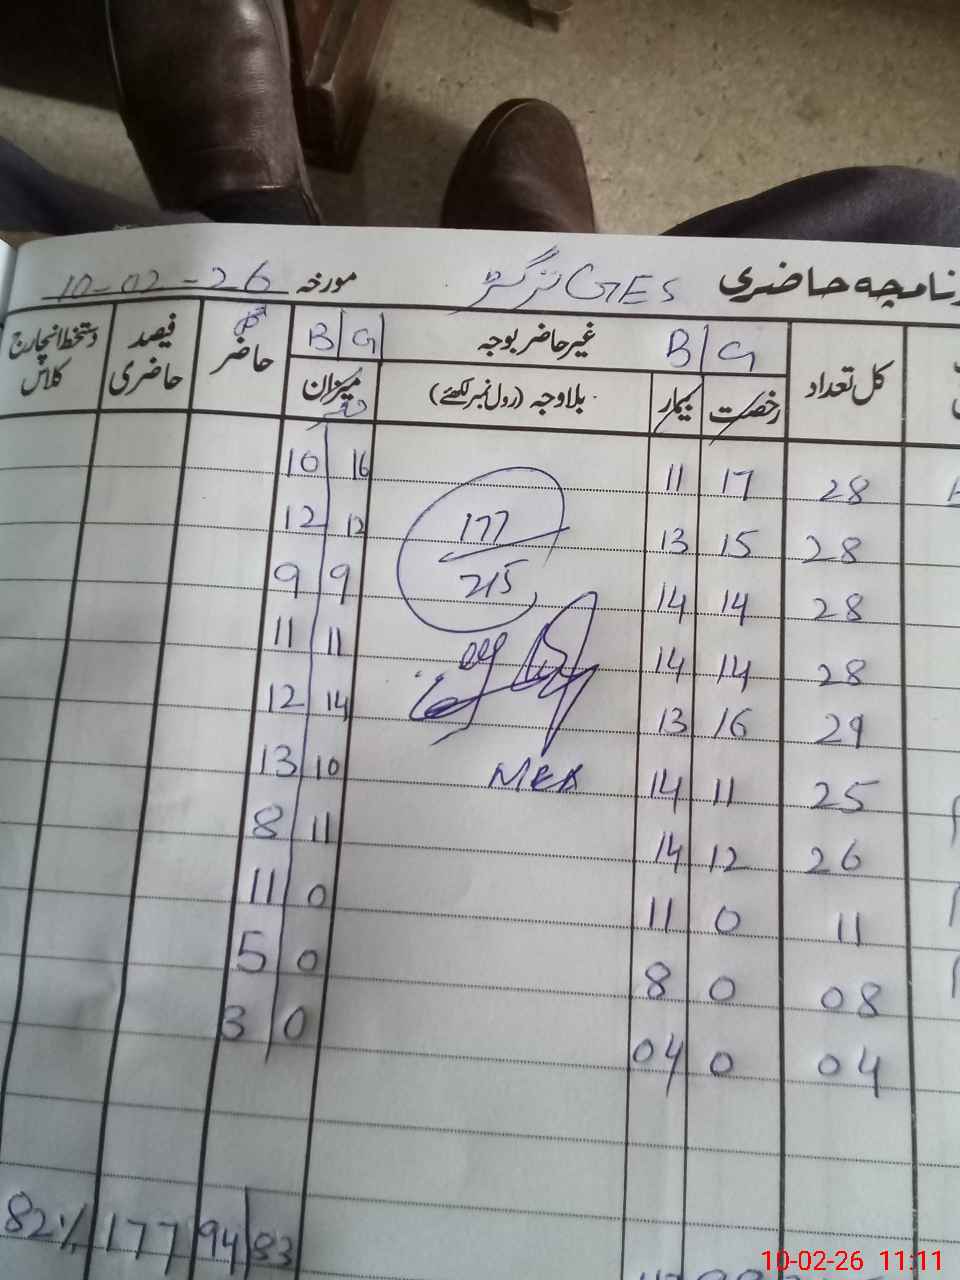 نامچہ حاضری GES مورخہ 10-02-26
کل تعداد B G غیر حاضر بوجہ B G حاضر فیصد حاضری دستخط انچارج کلاس
رخصت بیمار بلاوجہ (رول نمبر لکھئے) میزان
28 17 11 16 10
28 15 13 12 12
28 14 14 9 9
28 14 14 11 11
29 16 13 14 12
25 11 14 10 13
26 12 14 11 8
11 0 11 0 11
08 0 8 0 5
04 0 04 0 3
177
215
82% 177 94 83
10-02-26 11:11